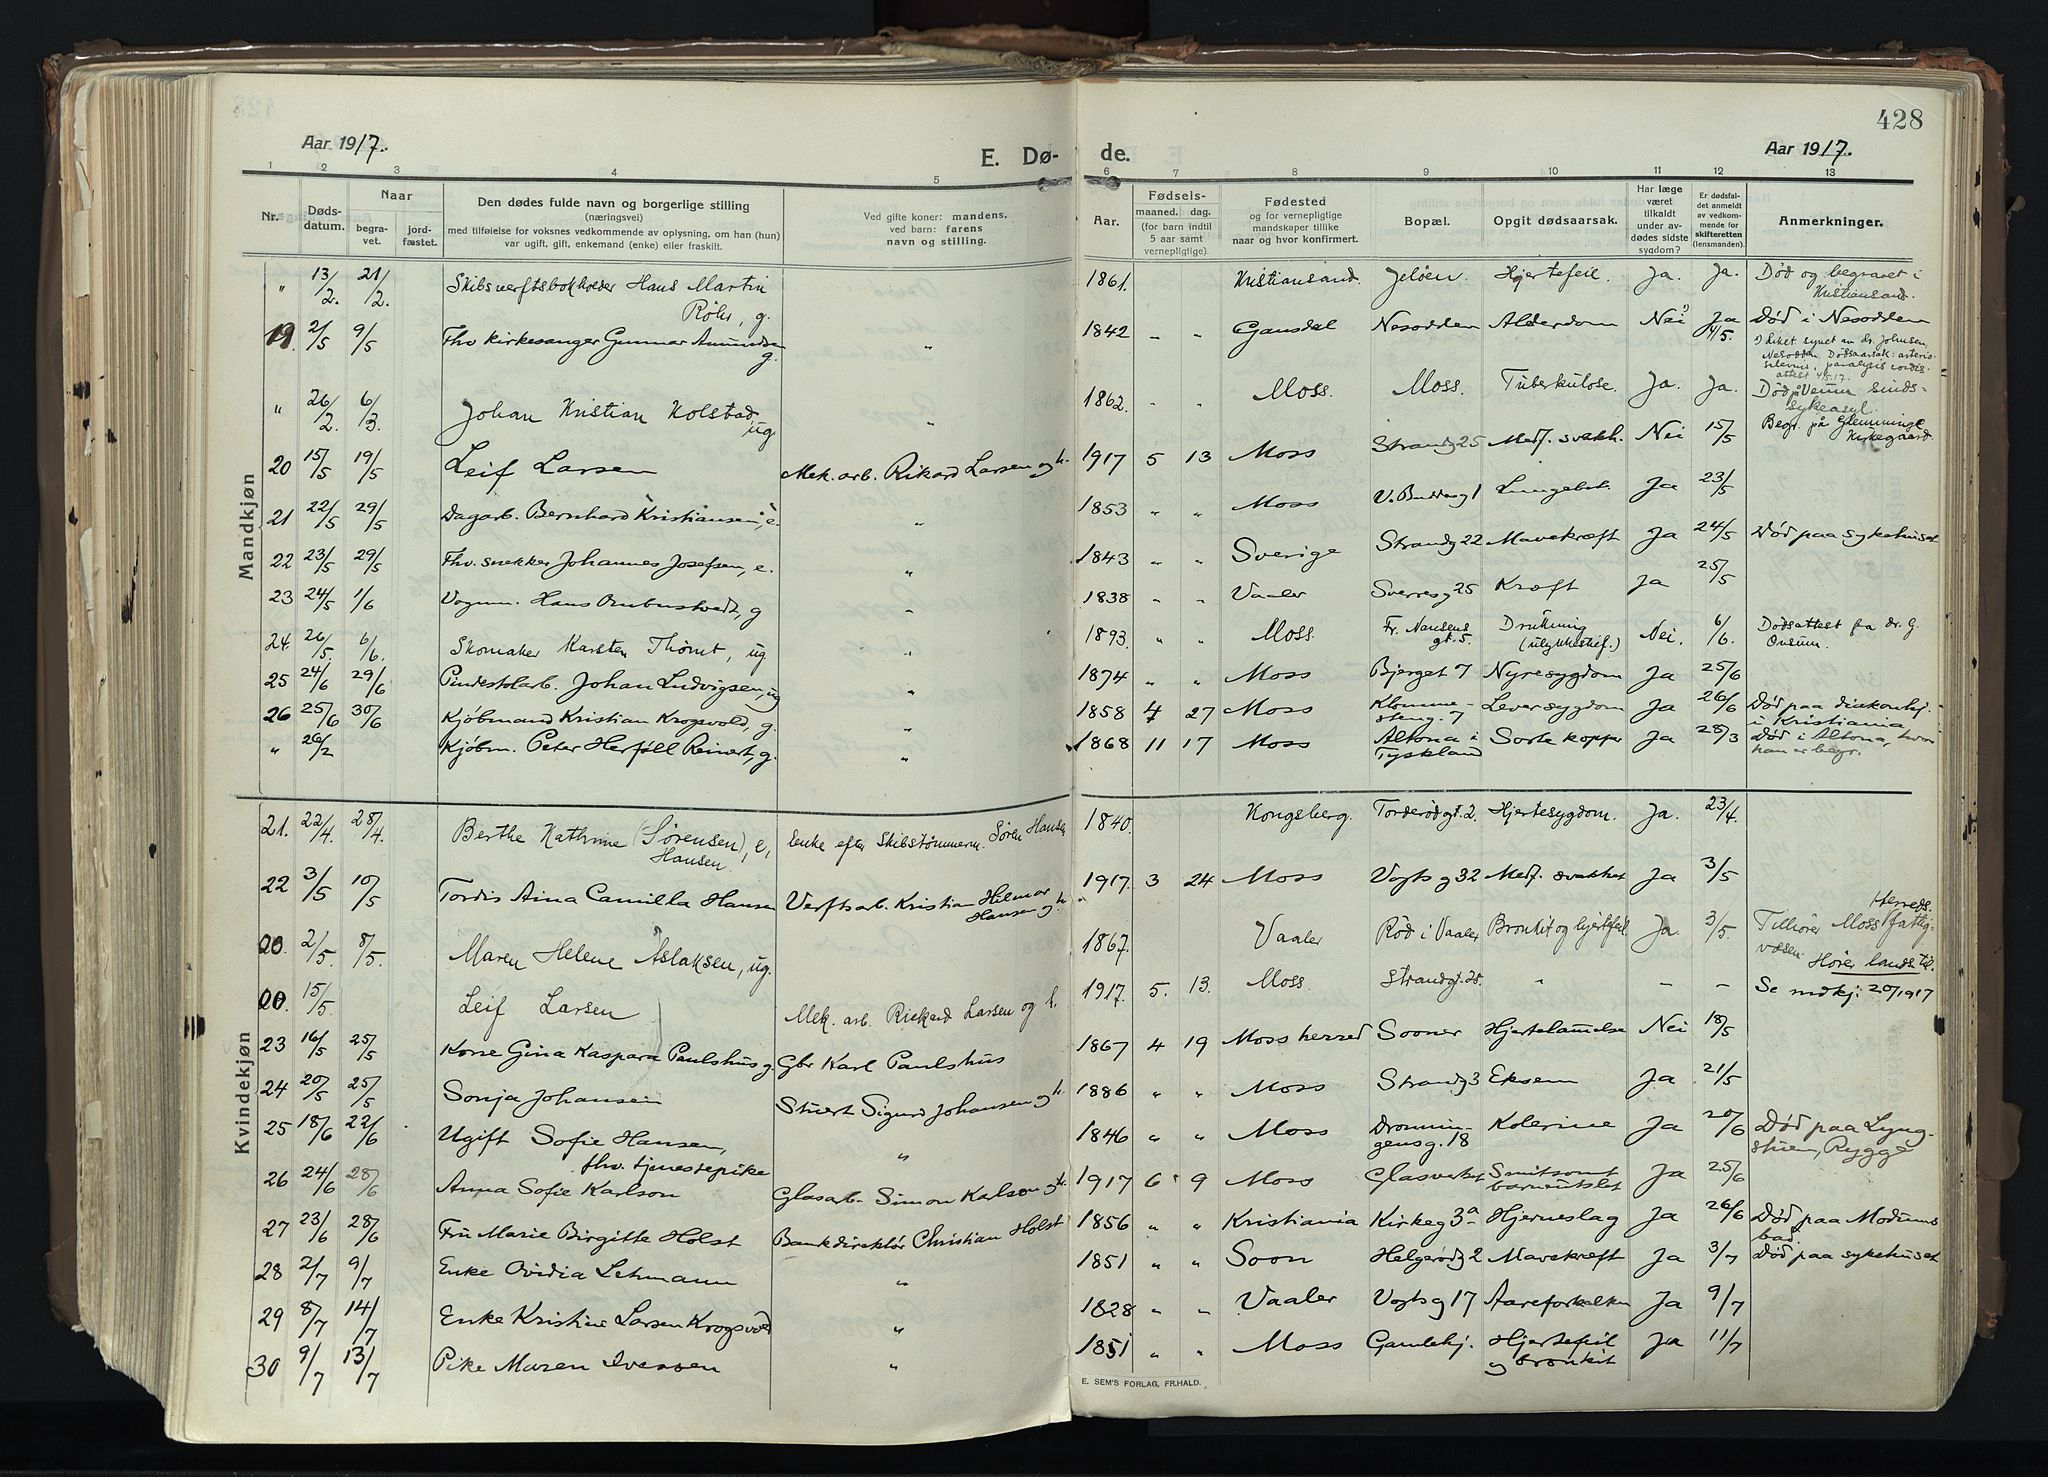 428
Aar 1917.
E. Dø-
de.
Aar 1917.
1 2 3 4 5 6 7 8 9 10 11 12 13
Nr.
Døds-
datum.
Naar
begra-
vet.
jord-
fæstet.
Den dødes fulde navn og borgerlige stilling
(næringsvei)
med tilføielse for voksnes vedkommende av oplysning, om han (hun)
var ugift, gift, enkemand (enke) eller fraskilt.
Ved gifte koner: mandens,
ved barn: farens
navn og stilling.
Aar.
Fødsels-
maaned. dag.
(for barn indtil
5 aar samt
vernepligtige).
Fødested
og for vernepligtige
mandskaper tillike
naar og hvor konfirmert.
Bopæl.
Opgit dødsaarsak.
Har læge
været
tilkaldt
under av-
dødes sidste
sygdom?
Er dødsfal-
det anmeldt
av vedkom-
mende for
skifteretten
(lensmanden).
Anmerkninger.
Mandkjøn
" 13/2. 21/2. Skibsverftsbokholder Hans Martin 1861. Kristiansand. Jeløen. Hjertefeil Ja. Ja. Død og begravet i
Røhr, g. Kristiansand.
19. 2/5 9/5 Fhv kirkesanger Gunnar Amundsen " 1842 - " Gansdal Nesodden Alderdom Nei 1) Ja 4/5. Død i Nesodden
g. 1) Liket synet av dr. Johnsen,
Nesodden. Dødsaarsak: arterio-
sclerose, paralysis cordis
attest 4/5.17.
" 26/2. 6/3. Johan Kristian Kolstad, " 1862. - " Moss. Moss. Tuberkulose. Ja. Ja. Død på Veum sinds-
ug. sykeasyl.
Begr. på Glemminge
Kirkegaard.
20 15/5 19/5 Leif Larsen Mek. arb. Rikard Larsen og h. 1917 5 13 Moss Strandg 25 Medf. svakh. Nei 15/5
21 22/5 29/5 Dagarb. Bernhard Kristiansen, e. " 1853 " " Moss V. Buddesg 1 Lungebet. Ja 23/5
22 23/5 29/5 Fhv. snekker Johannes Josefsen, e. " 1843 " " Sverige Strandg 22 Mavekræft Ja 24/5 Død paa sykehuset
23 24/5 1/6 Vognm. Hans Ombustvedt, g " 1838 " " Vaaler Sverresg 25 Kræft Ja 25/5
24 26/5. 6/6. Skomaker Karsten Thømt, ug. " 1893 " " Moss. Fr. Nansens Drukning Nei. 6/6. Dødsattest fra dr. G.
gt. 5 (ulykkestilf.) Onsum.
25 24/6 29/6 Pindestolarb. Johan Ludvigsen, ug " 1874 " " Moss Bjerget 7 Nyresygdom Ja 25/6
26 25/6 30/6 Kjøbmand Kristian Krogsvold, g. 1858 4 27 Moss Klomme- Leversygdom Ja 26/6 Død paa diakonhj.
steng. 7 i Kristiania
" 26/2 Kjøbm. Peter Herføll Reinert, g. " 1868 11 17 Moss Altona i Sorte kopper Ja 28/3 Død i Altona, hvor
Tyskland han er begr.
Kvindekjøn
21. 22/4. 28/4. Berthe Kathrine (Sørensen), e, Enke efter Skibstømmerm. Søren Hansen 1840. Kongsberg. Torderødgt. 2. Hjertesygdom. Ja. 23/4.
Hansen.
22 3/5 10/5 Tordis Aina Camilla Hansen Verftsarb. Kristian Hilmar 1917. 3 24 Moss Vogtsg 32 Medf. svakhet Ja 3/5
Hansen og h.
20. 2/5. 8/5. Maren Helene Aslaksen, ug. 1867. Vaaler Rød i Vaaler Bronkit og hjertefeil. Ja. 3/5. Tilhører Moss Herreds fattig-
væsen. Hører lands til.
20. 15/5. Leif Larsen Mek. arb. Rickard Larsen og h. 1917. 5. 13. Moss. Strandgt. 25. " - - Se mdkj. 20/1917
23 16/5 25/5 Kone Gina Kaspara Paulshus g. Gbr Karl Paulshus 1867 4 19 Moss herred Sooner Hjertelammelse Nei 18/5
24 20/5 25/5 Sonja Johansen Stuert Sigurd Johansen og h. 1886 " " Moss Strandg 3 Eksem Ja 21/5
25 18/6 22/6 Ugift Sofie Hansen, " 1846 " " Moss Dronnin- Kolerine Ja 20/6 Død paa Lyng-
fhv. tjenestepike gensg. 18 stuen, Rygge
26 24/6 28/6 Anna Sofie Karlson Glasarb. Simon Karlson og h. 1917 6 9 Moss Glasverket Smitsomt Ja 25/6
barneutslet
27 23/6 28/6 Fru Marie Birgitte Holst Bankdirektør Christian Holst 1856 " " Kristiania Kirkeg 3a Hjerneslag Ja 26/6 Død paa Modums
bad.
28 2/7 9/7 Enke Ovidia Lehmann " 1851 " " Soon Helgerødg 2 Mavekræft Ja 3/7 Død paa sykehuset
29 8/7 14/7 Enke Kristine Larsen Krogsvold " 1828 " " Vaaler Vogtsg 17 Aareforkalkn Ja 9/7
30 9/7 13/7 Pike Maren Iversen " 1851 " " Moss Gamlehj. Hjertefeil Ja 11/7
og bronkit
E. SEM'S FORLAG, FR.HALD.